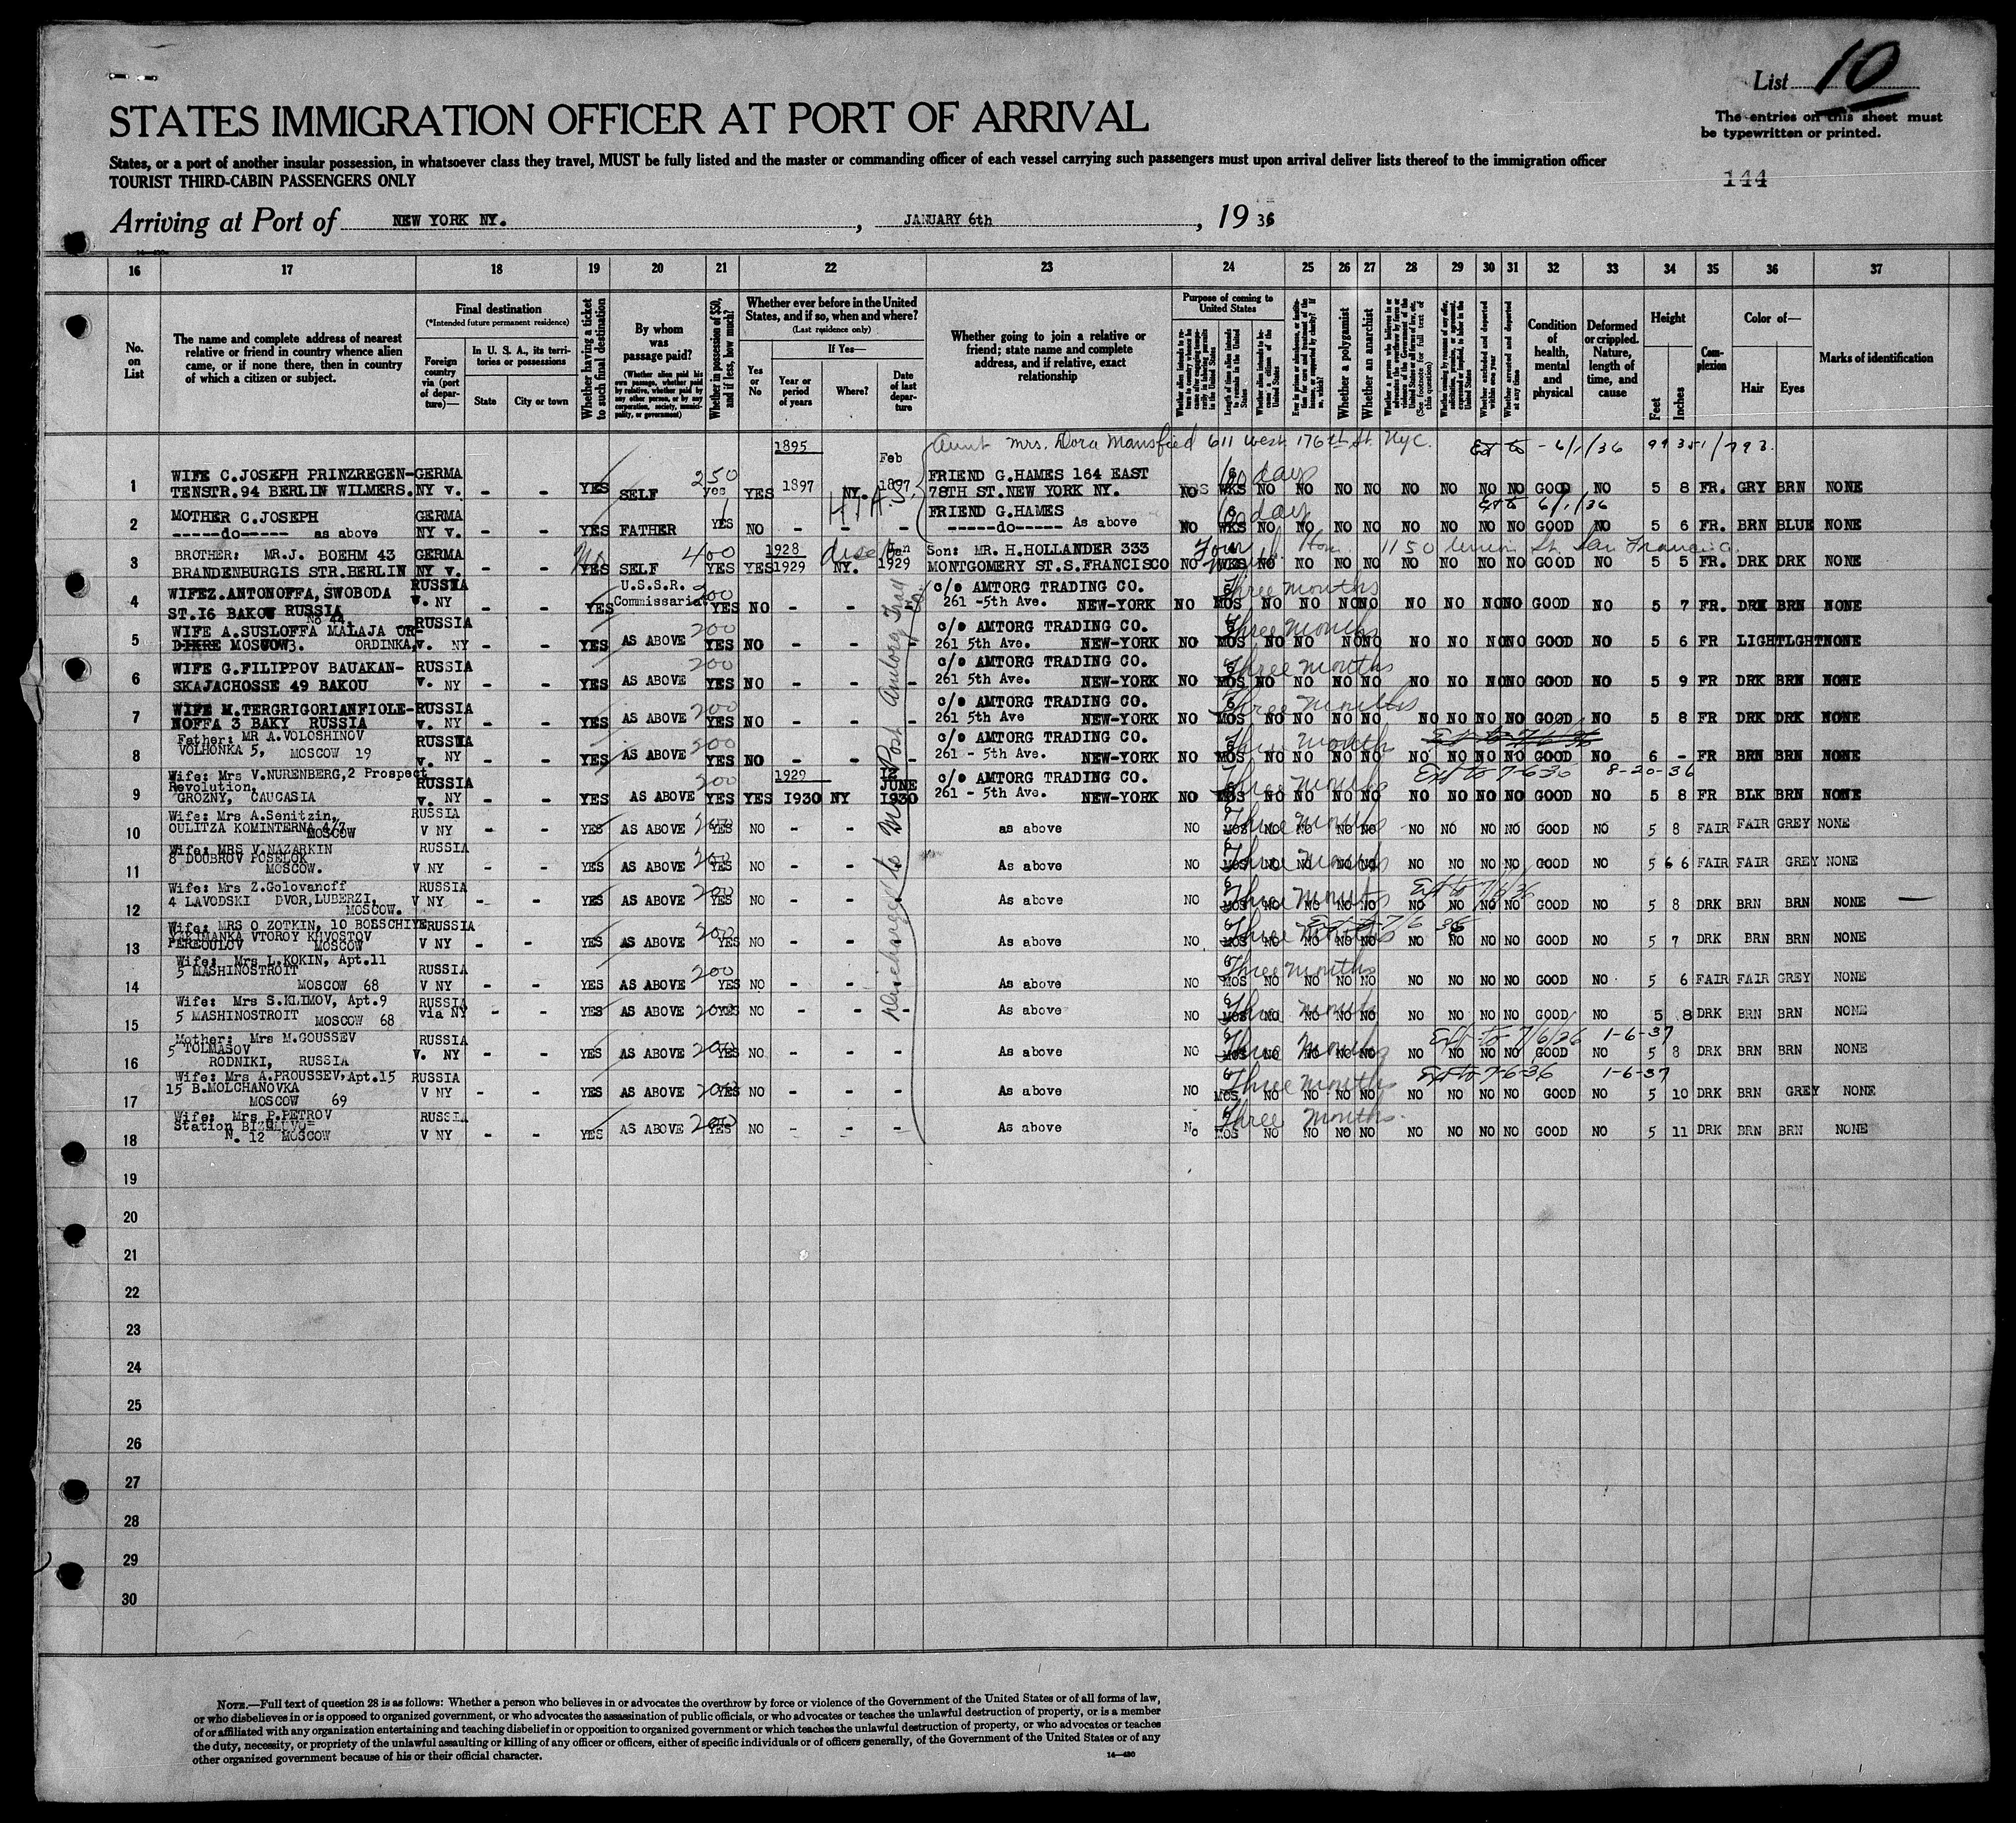 List 10
STATES IMMIGRATION OFFICER AT PORT OF ARRIVAL
The entries on this sheet must
be typewritten or printed.
States, or a port of another insular possession, in whatsoever class they travel, MUST be fully listed and the master or commanding officer of each vessel carrying such passengers must upon arrival deliver lists thereof to the immigration officer
TOURIST THIRD-CABIN PASSENGERS ONLY
144
Arriving at Port of NEW YORK NY. , JANUARY 6th , 19 36
16 17 18 19 20 21 22 23 24 25 26 27 28 29 30 31 32 33 34 35 36 37
No. on List
The name and complete address of nearest relative or friend in country whence alien came, or if none there, then in country of which a citizen or subject.
Final destination
(*Intended future permanent residence)
Foreign country via (port of departure)—
In U. S. A., its territories or possessions
State
City or town
Whether having a ticket to such final destination
By whom was passage paid?
(Whether alien paid his own passage, whether paid by relative, whether paid by any other person, or by any corporation, society, municipality, or government)
Whether in possession of $50, and if less, how much?
Whether ever before in the United States, and if so, when and where?
(Last residence only)
Yes or No
If Yes—
Year or period of years
Where?
Date of last departure
Whether going to join a relative or friend; state name and complete address, and if relative, exact relationship
Purpose of coming to United States
Length of time alien intends to remain in the United States
Whether alien intends to become a citizen of the United States
Whether a polygamist
Whether an anarchist
Whether excluded and deported within one year
Whether arrested and deported at any time
Condition of health, mental and physical
Deformed or crippled. Nature, length of time, and cause
Height
Feet
Inches
Complexion
Color of—
Hair
Eyes
Marks of identification
1895 Feb Aunt Mrs. Dora Mansfield 611 West 176th St. Nyc. Ext to - 6/1/36 99351/793
1 WIFE C.JOSEPH PRINZREGEN- GERMA 250 FRIEND G.HAMES 164 EAST 60 days
TENSTR.94 BERLIN WILMERS. NY v. - - YES SELF yes YES 1897 NY. 1897 78TH ST.NEW YORK NY. NO WKS NO NO NO NO NO NO NO NO GOOD NO 5 8 FR. GRY BRN NONE
HIAS
2 MOTHER C.JOSEPH GERMA FRIEND G.HAMES 60 days Ext to 6/1/36
-----do----- as above NY v. - - YES FATHER YES NO - - - -----do----- As above NO WKS NO NO NO NO NO NO NO NO GOOD NO 5 6 FR. BRN BLUE NONE
3 BROTHER: MR.J. BOEHM 43 GERMA No 400 1928 Jan Son: MR. H.HOLLANDER 333 Four 1150 Union St. San Francisco
BRANDENBURGIS STR.BERLIN NY v. - - YES SELF YES YES 1929 NY. 1929 MONTGOMERY ST.S.FRANCISCO NO WKS NO NO NO NO NO NO NO NO GOOD NO 5 5 FR. DRK DRK NONE
4 WIFEZ.ANTONOFFA, SWOBODA RUSSIA U.S.S.R. 200 c/o AMTORG TRADING CO. Three months
ST.I6 BAKOU RUSSIA v. NY - - YES Commissariat YES NO - - 261 -5th Ave. NEW-YORK NO 6 MOS NO NO NO NO NO NO NO NO GOOD NO 5 7 FR. DRK BRN NONE
No 44.
5 WIFE A.SUSLOFFA MALAJA OR- RUSSIA 200 c/o AMTORG TRADING CO. Three months
MOSCOW3. ORDINKA, v. NY - - YES AS ABOVE YES NO - - - 261 5th Ave. NEW-YORK NO 6 MOS NO NO NO NO NO NO NO NO GOOD NO 5 6 FR LIGHT LGHT NONE
6 WIFE G.FILIPPOV BAUAKAN- RUSSIA 200 c/o AMTORG TRADING CO. Three months
SKAJACHOSSE 49 BAKOU v. NY - - YES AS ABOVE YES NO - - - 261 5th Ave. NEW-YORK NO 6 MOS NO NO NO NO NO NO NO NO GOOD NO 5 9 FR DRK BRN NONE
7 WIFE M.TERGRIGORIANFIOLE- RUSSIA 200 c/o AMTORG TRADING CO. Three months
NOFFA 3 BAKY RUSSIA v. NY - - YES AS ABOVE YES NO - - - 261 5th Ave NEW-YORK NO 6 MOS NO NO NO NO NO NO NO NO GOOD NO 5 8 FR DRK DRK NONE
8 Father: MR A.VOLOSHINOV RUSSIA 200 c/o AMTORG TRADING CO. Three months Ext to 7/6/36
VOLHONKA 5, MOSCOW 19 v. NY - - YES AS ABOVE YES NO - - - 261 - 5th Ave. NEW-YORK NO 6 MOS NO NO NO NO NO NO NO NO GOOD NO 6 - FR BRN BRN NONE
9 Wife: Mrs V.NURENBERG,2 Prospect 200 1929 c/o AMTORG TRADING CO. Three months Ext to 7-6-36 8-20-36
Revolution, RUSSIA JUNE
GROZNY, CAUCASIA v. NY - - YES AS ABOVE YES YES I930 NY I930 261 - 5th Ave. NEW-YORK NO 6 MOS NO NO NO NO NO NO NO NO GOOD NO 5 8 FR BLK BRN NONE
10 Wife: Mrs A.Senitzin, RUSSIA 200 Three months
OULITZA KOMINTERNA 4/7 MOSCOW V NY - - YES AS ABOVE YES NO - - - as above NO 6 MOS NO NO NO NO NO NO NO NO GOOD NO 5 8 FAIR FAIR GREY NONE
11 Wife: MRS V.NAZARKIN RUSSIA 200 Three months
8 DOUBROV POSELOK
MOSCOW. V NY - - YES AS ABOVE YES NO - - - As above NO 6 MOS NO NO NO NO NO NO NO NO GOOD NO 5 6 6 FAIR FAIR GREY NONE
12 Wife: Mrs Z.Golovanoff RUSSIA 200 Three months Ext to 7/6/36
4 LAVODSKI DVOR,LUBERZI,
MOSCOW. V NY - - YES AS ABOVE YES NO - - - As above NO 6 MOS NO NO NO NO NO NO NO NO GOOD NO 5 8 DRK BRN BRN NONE
13 Wife: MRS O ZOTKIN, 10 BOESCHIYE RUSSIA 200 Three months Ext to 7/6 36
YAKIMANKA VTOROY KHVOSTOV
PEREOULOV MOSCOW V NY - - YES AS ABOVE YES NO - - - As above NO 6 MOS NO NO NO NO NO NO NO NO GOOD NO 5 7 DRK BRN BRN NONE
14 Wife: Mrs L.KOKIN, Apt.11
5 MASHINOSTROIT RUSSIA 200 Three months
MOSCOW 68 V NY - - YES AS ABOVE YES NO - - - As above NO 6 MOS NO NO NO NO NO NO NO NO GOOD NO 5 6 FAIR FAIR GREY NONE
15 Wife: Mrs S.KLIMOV, Apt.9 RUSSIA
5 MASHINOSTROIT MOSCOW 68 via NY - - YES AS ABOVE 200 YES NO - - - As above NO 6 MOS Three months NO NO NO NO NO NO NO NO GOOD NO 5 8 DRK BRN BRN NONE
16 Mother: Mrs M.GOUSSEV RUSSIA Three months Ext to 7/6/36 1-6-37
5 TOLMASOV
RODNIKI, RUSSIA V. NY - - YES AS ABOVE 200 YES NO - - - As above NO 6 MOS NO NO NO NO NO NO NO NO GOOD NO 5 8 DRK BRN BRN NONE
17 Wife: Mrs A.PROUSSEV,Apt.15 RUSSIA Three months Ext to 7-6-36 1-6-37
15 B.MOLCHANOVKA
MOSCOW 69 V NY - - YES AS ABOVE 200 YES NO - - - As above NO 6 MOS NO NO NO NO NO NO NO NO GOOD NO 5 10 DRK BRN GREY NONE
18 Wife: Mrs P.PETROV RUSSIA Three months.
Station
N. 12 MOSCOW V NY - - YES AS ABOVE 200 YES NO - - - As above No 6 MOS NO NO NO NO NO NO NO NO GOOD NO 5 11 DRK BRN BRN NONE
Discharged to Amtorg Trad Co
19
20
21
22
23
24
25
26
27
28
29
30
NOTE.—Full text of question 28 is as follows: Whether a person who believes in or advocates the overthrow by force or violence of the Government of the United States or of all forms of law,
or who disbelieves in or is opposed to organized government, or who advocates the assassination of public officials, or who advocates or teaches the unlawful destruction of property, or is a member
of or affiliated with any organization entertaining and teaching disbelief in or opposition to organized government or which teaches the unlawful destruction of property, or who advocates or teaches
the duty, necessity, or propriety of the unlawful assaulting or killing of any officer or officers, either of specific individuals or of officers generally, of the Government of the United States or of any
other organized government because of his or their official character.
14—490